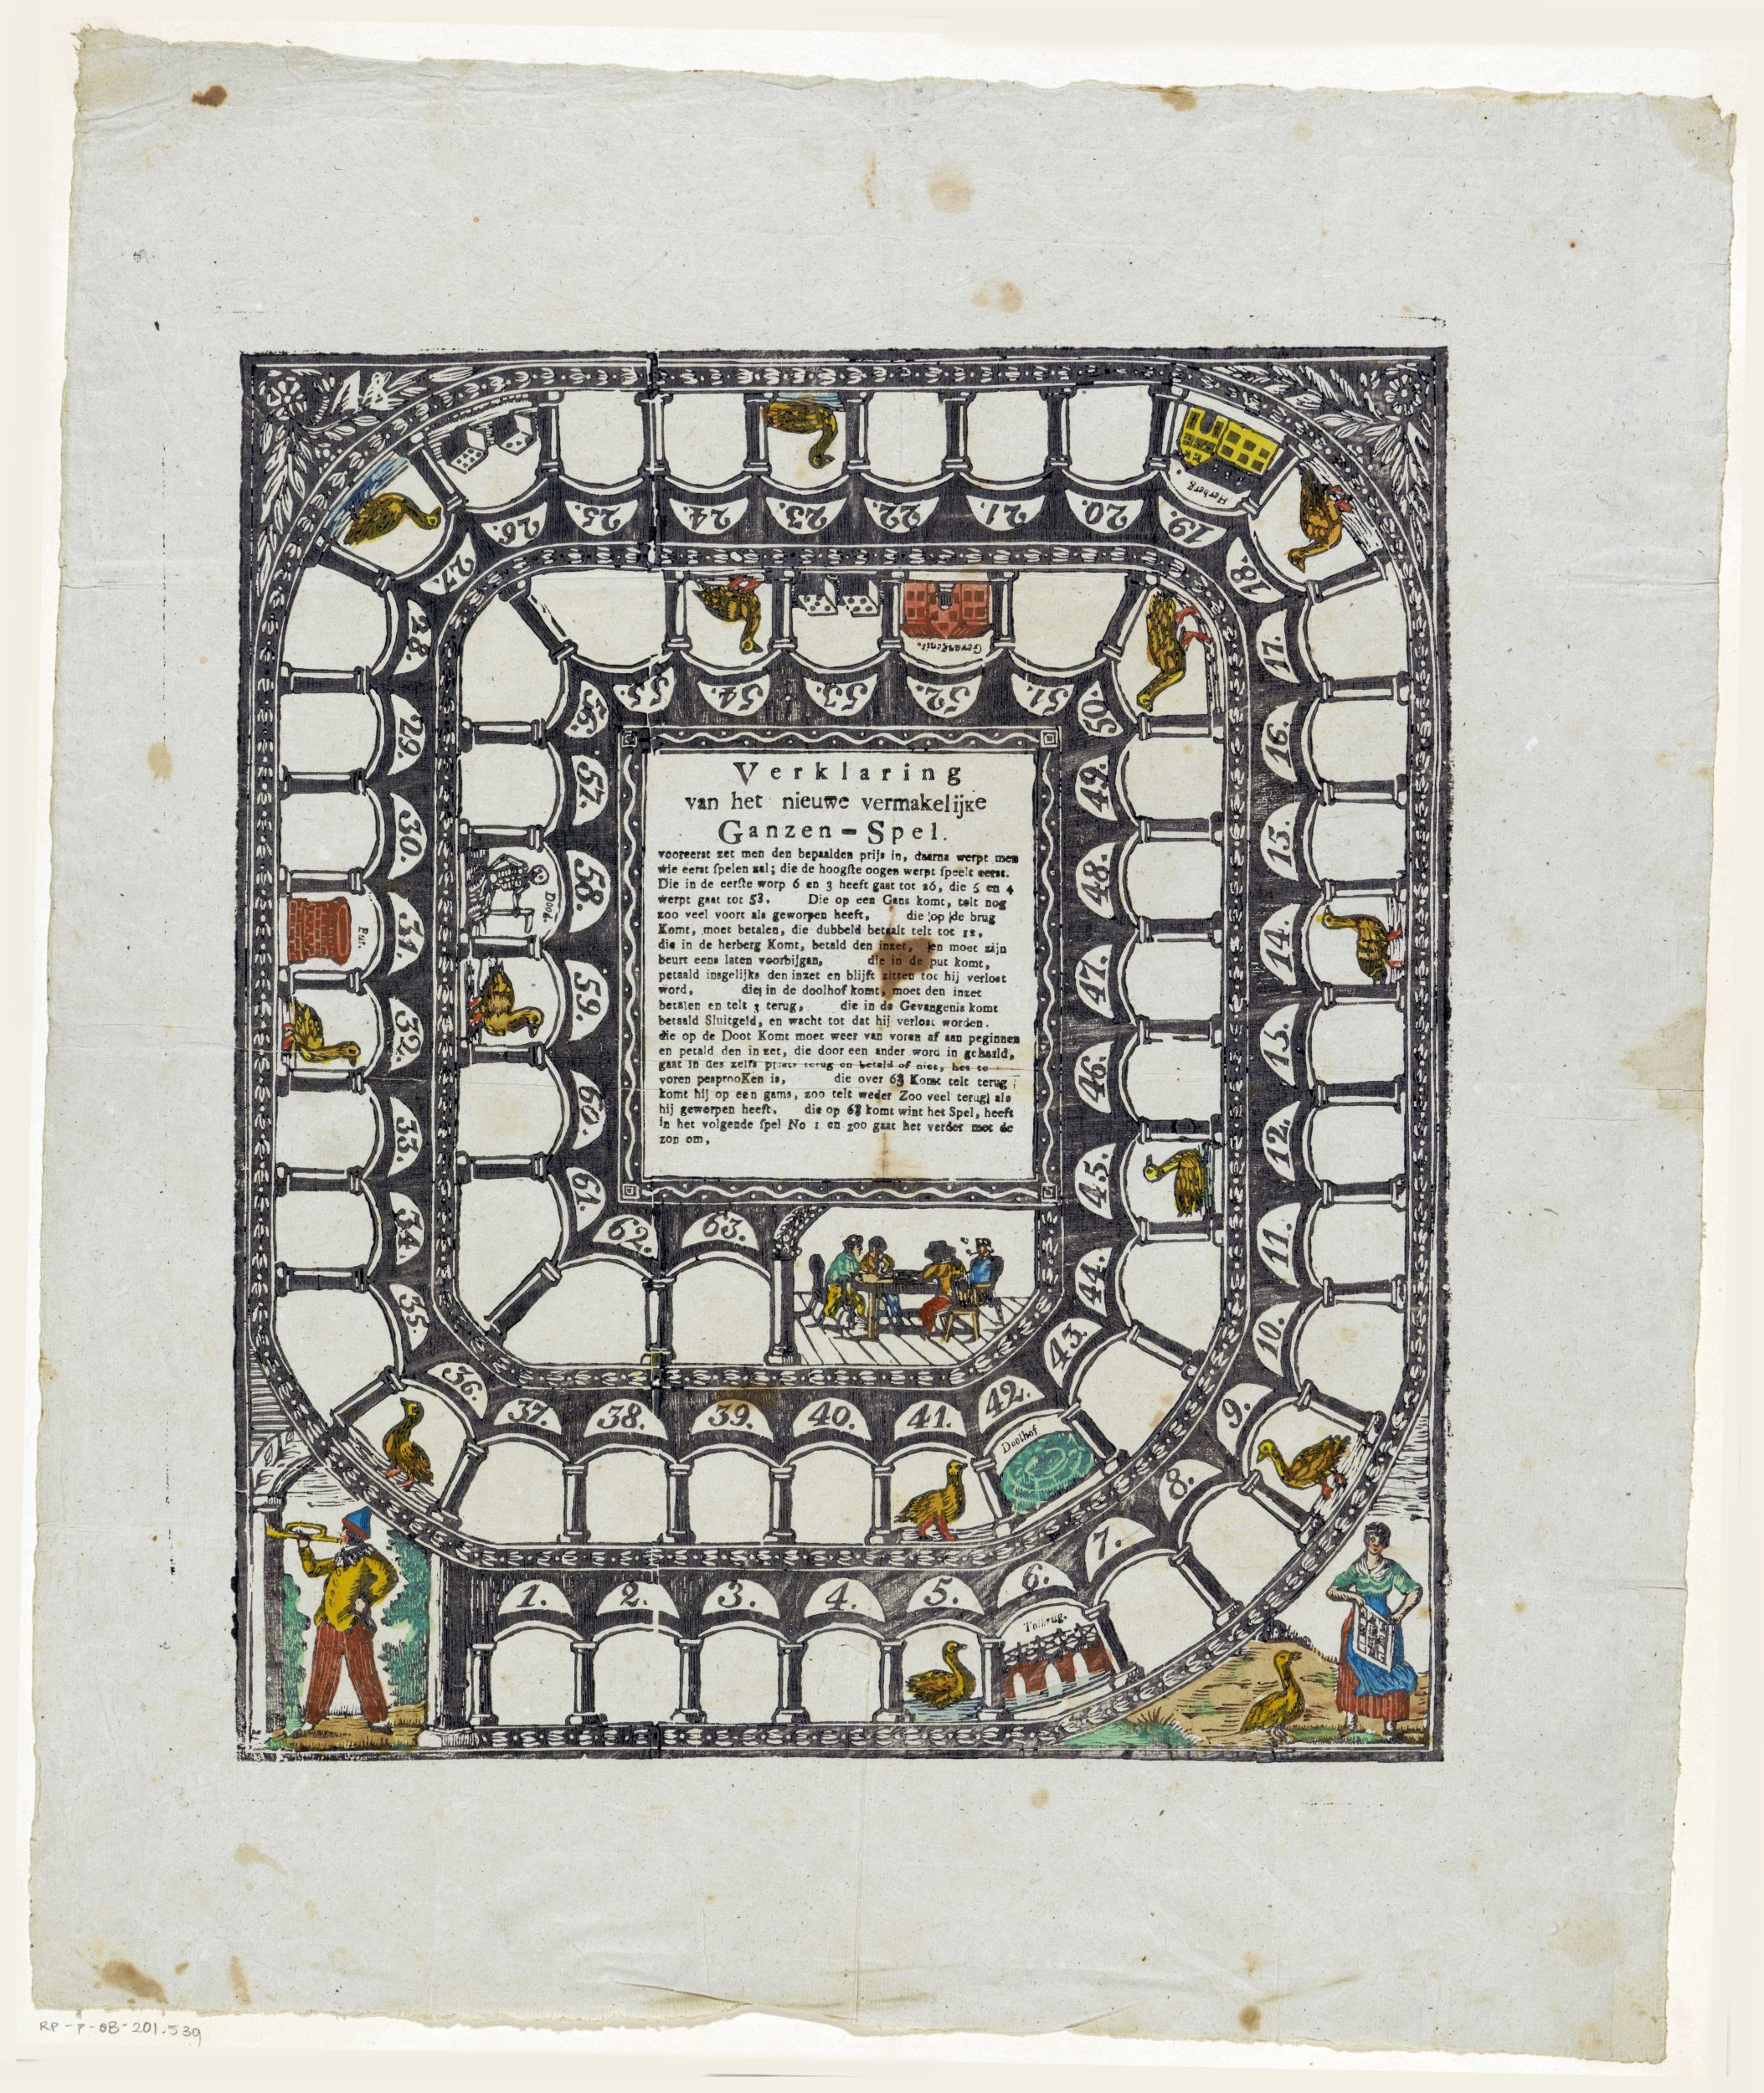 Verklaring
van het nieuwe vermakelijke
Ganzen-Spel.
vooreerst zet men den bepaalden prijs in, daarna werpt men
wie eerst ſpelen zal; die de hoogſte oogen werpt ſpeelt eerst.
Die in de eerſte worp 6 en 3 heeft gaat tot 26, die 5 en 4
werpt gaat tot 53. Die op een Gans komt, telt nog
zoo veel voort als geworpen heeft, die op de brug
Komt, moet betalen, die dubbeld betaalt telt tot 12,
die in de herberg Komt, betald den inzet, en moet zijn
beurt eens laten voorbijgan, die in de put komt,
petaald insgelijks den inzet en blijft zitten tot hij verlost
word, die in de doolhof komt, moet den inzet
betalen en telt 3 terug, die in de Gevangenis komt
betaald Sluitgeld, en wacht tot dat hij verlost worden.
die op de Doot Komt moet weer van voren af aan peginnen
en petald den in zet, die door een ander word in gehaald,
gaat in des zelfs terug en betald of niet, het te
voren pesprooKen is, die over 63 Komt telt terug
komt hij op een gams, zoo telt weder Zoo veel terug als
hij geworpen heeft. die op 63 komt wint het Spel, heeft
in het volgende ſpel No 1 en zoo gaat het verder met de
zon om,
1.
2.
3.
4.
5.
6.
Tolbrug.
7.
8.
9.
10.
11.
12.
13.
14.
15.
16.
17.
18.
19.
Herberg
20.
21.
22.
23.
24.
25.
26.
27.
28.
29.
30.
31.
Put.
32.
33.
34.
35.
36.
37.
38.
39.
40.
41.
42.
Doolhof
43.
44.
45.
46.
47.
48.
49.
50.
51.
52.
Gevangenis.
53.
54.
55.
56.
57.
58.
Dood.
59.
60.
61.
62.
63.
RP-P-OB-201.539